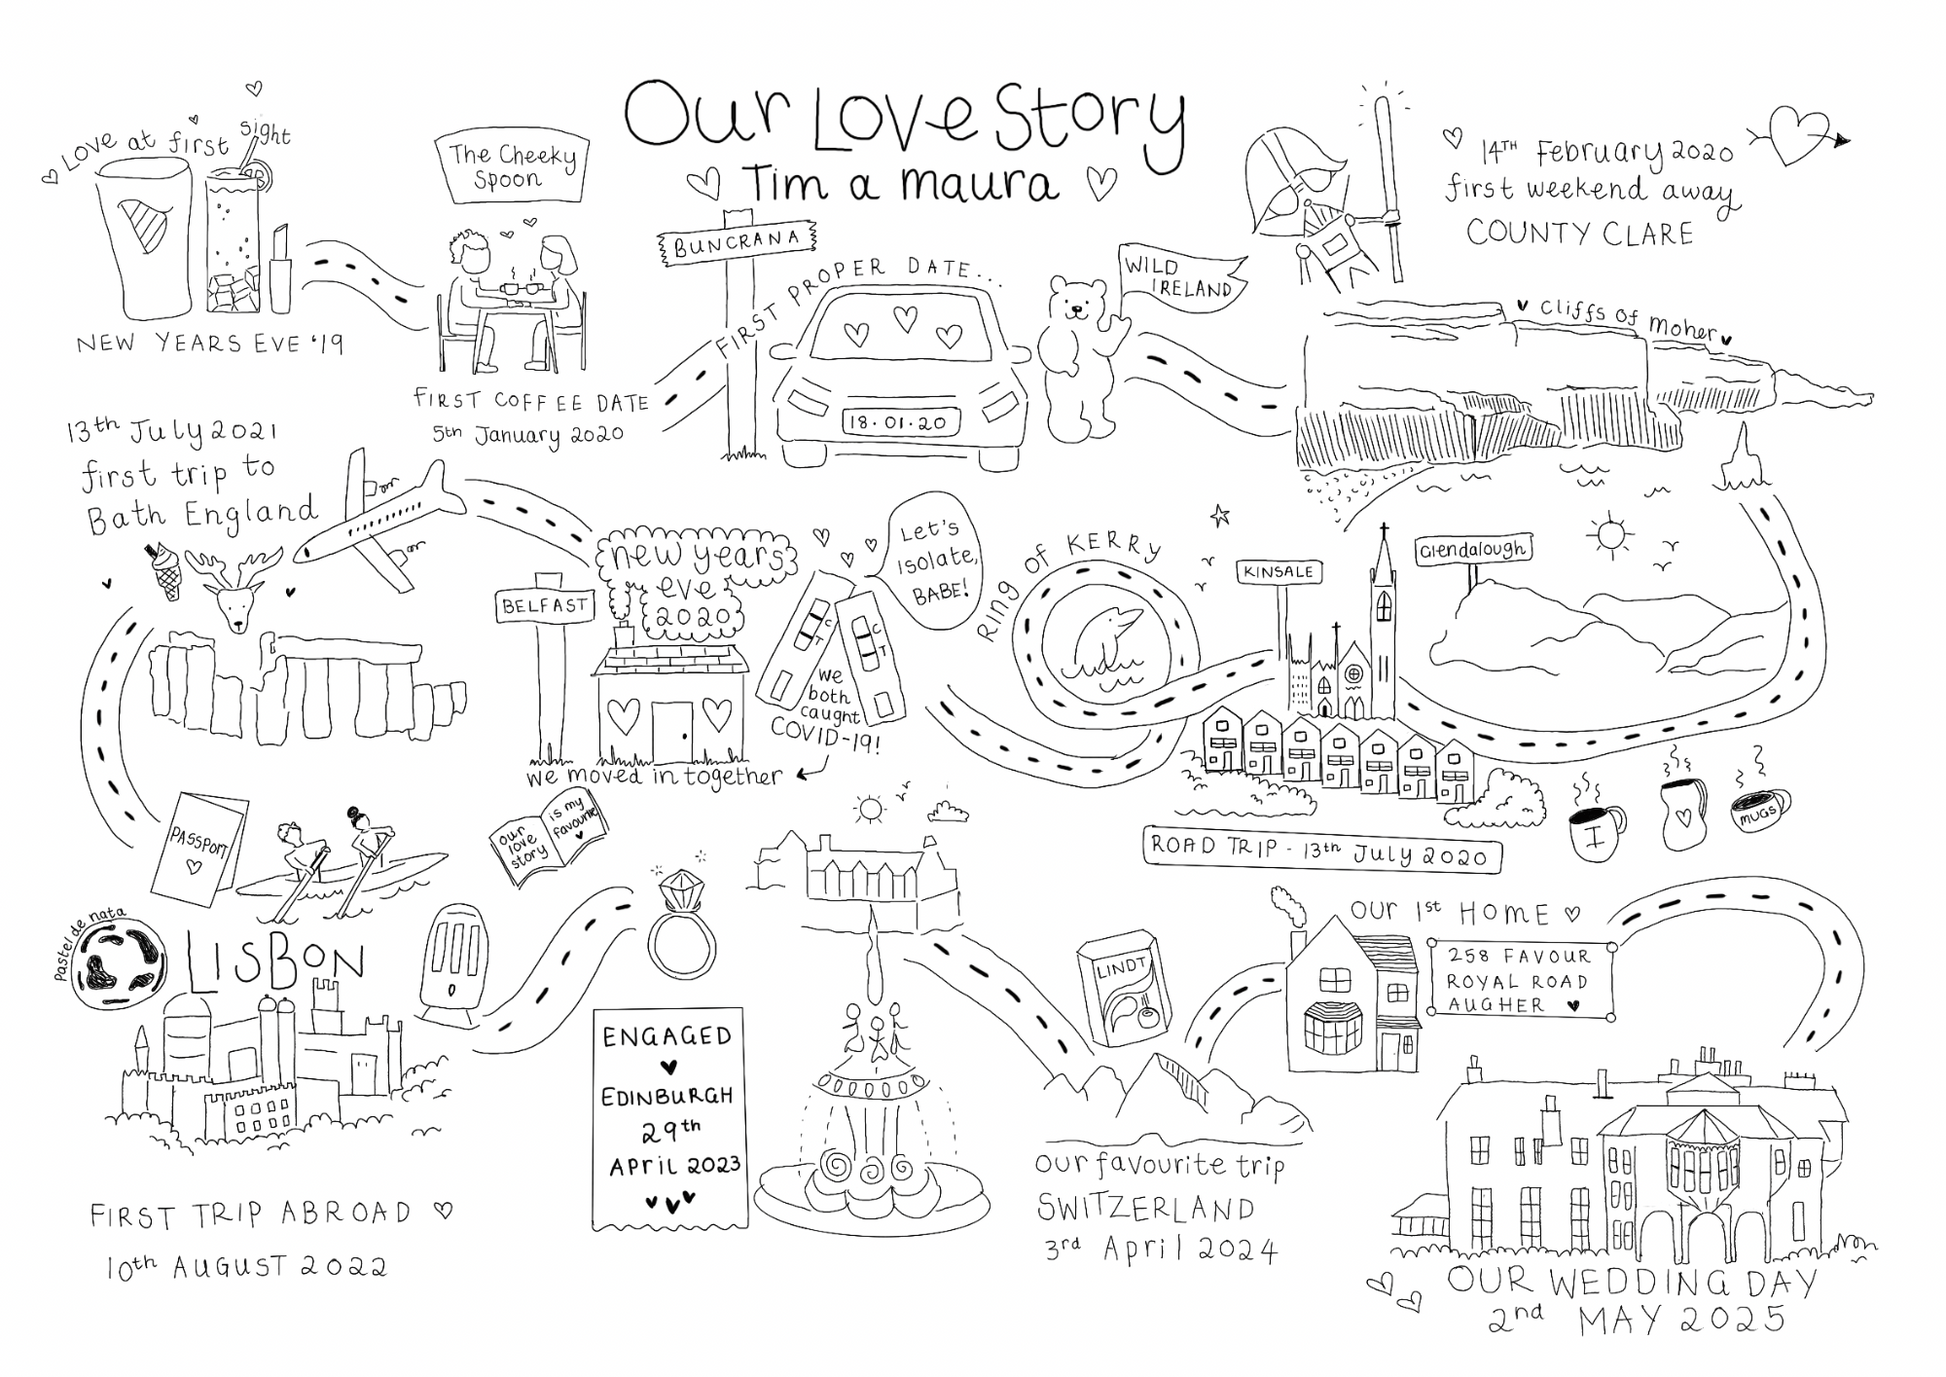 Our Love Story
Tim a maura
Love at first sight
NEW YEARS EVE '19
The Cheeky
Spoon
FIRST COFFEE DATE
5th January 2020
BUNCRANA
FIRST PROPER DATE...
18.01.20
WILD
IRELAND
14TH February 2020
first weekend away
COUNTY CLARE
Cliffs of Moher
Glendalough
KINSALE
Ring of KERRY
ROAD TRIP - 13th July 2020
I
MUGS
Let's
isolate,
BABE!
C
T
C
T
we
both
caught
COVID-19!
new years
eve
2020
BELFAST
we moved in together
13th July 2021
first trip to
Bath England
PASSPORT
Pastel de nata
LISBON
FIRST TRIP ABROAD
10th AUGUST 2022
our
love
story
is my
favourite
ENGAGED
EDINBURGH
29th
April 2023
LINDT
our favourite trip
SWITZERLAND
3rd April 2024
our 1st HOME
258 FAVOUR
ROYAL ROAD
AUGHER
OUR WEDDING DAY
2nd MAY 2025